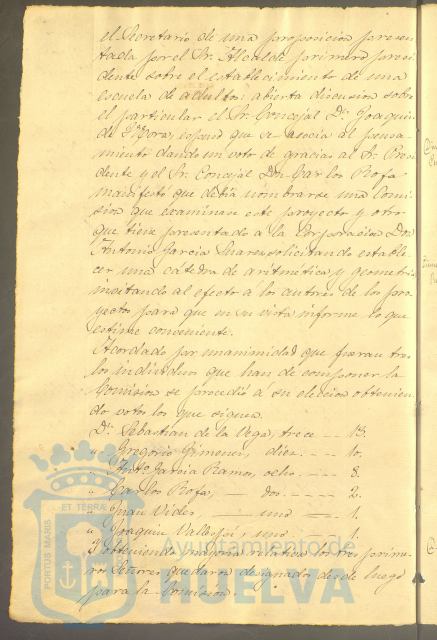 el Secretario de una proposicion presen-
tada por el Sr. Alcalde primero presi-
dente sobre el establecimiento de una
escuela de adultos; abierta discusion sobre
el particular el Sr. Concejal Dn. Joaquin
de Mora, espuso que se asocia al pensa-
miento dando un voto de gracias al Sr. Presi-
dente y el Sr. Concejal Don Carlos Rofa
manifestó que debia nombrarse una Comi-
sion que examinase este proyecto y otro
que tiene presentado a la Corporacion Don
Antonio Garcia solicitando estable-
cer una cátedra de aritmética y geometria
invitando al efecto á los autores de los pro-
yectos para que en su vista informe lo que
estime conveniente.
Acordado por unanimidad que fueran tres
los individuos que han de componer la
Comision se procedió á su eleccion obtenien-
do votos los que siguen.
Dn. Sebastian de la Vega, trece -- 13.
" Gregorio Gimenez, diez --- 10.
" Anto. Garcia Ramos, ocho --- 8.
" Carlos Rofa, — dos --- 2.
" Juan Vides, — uno — 1.
" Joaquin Vallejo, uno 1.
Y obteniendo mayoria relativa los tres prime-
ros Señores quedaron designados desde luego
para la Comision.
PORTUS MARIS
ET TERRÆ
Ayuntamiento de
HUELVA